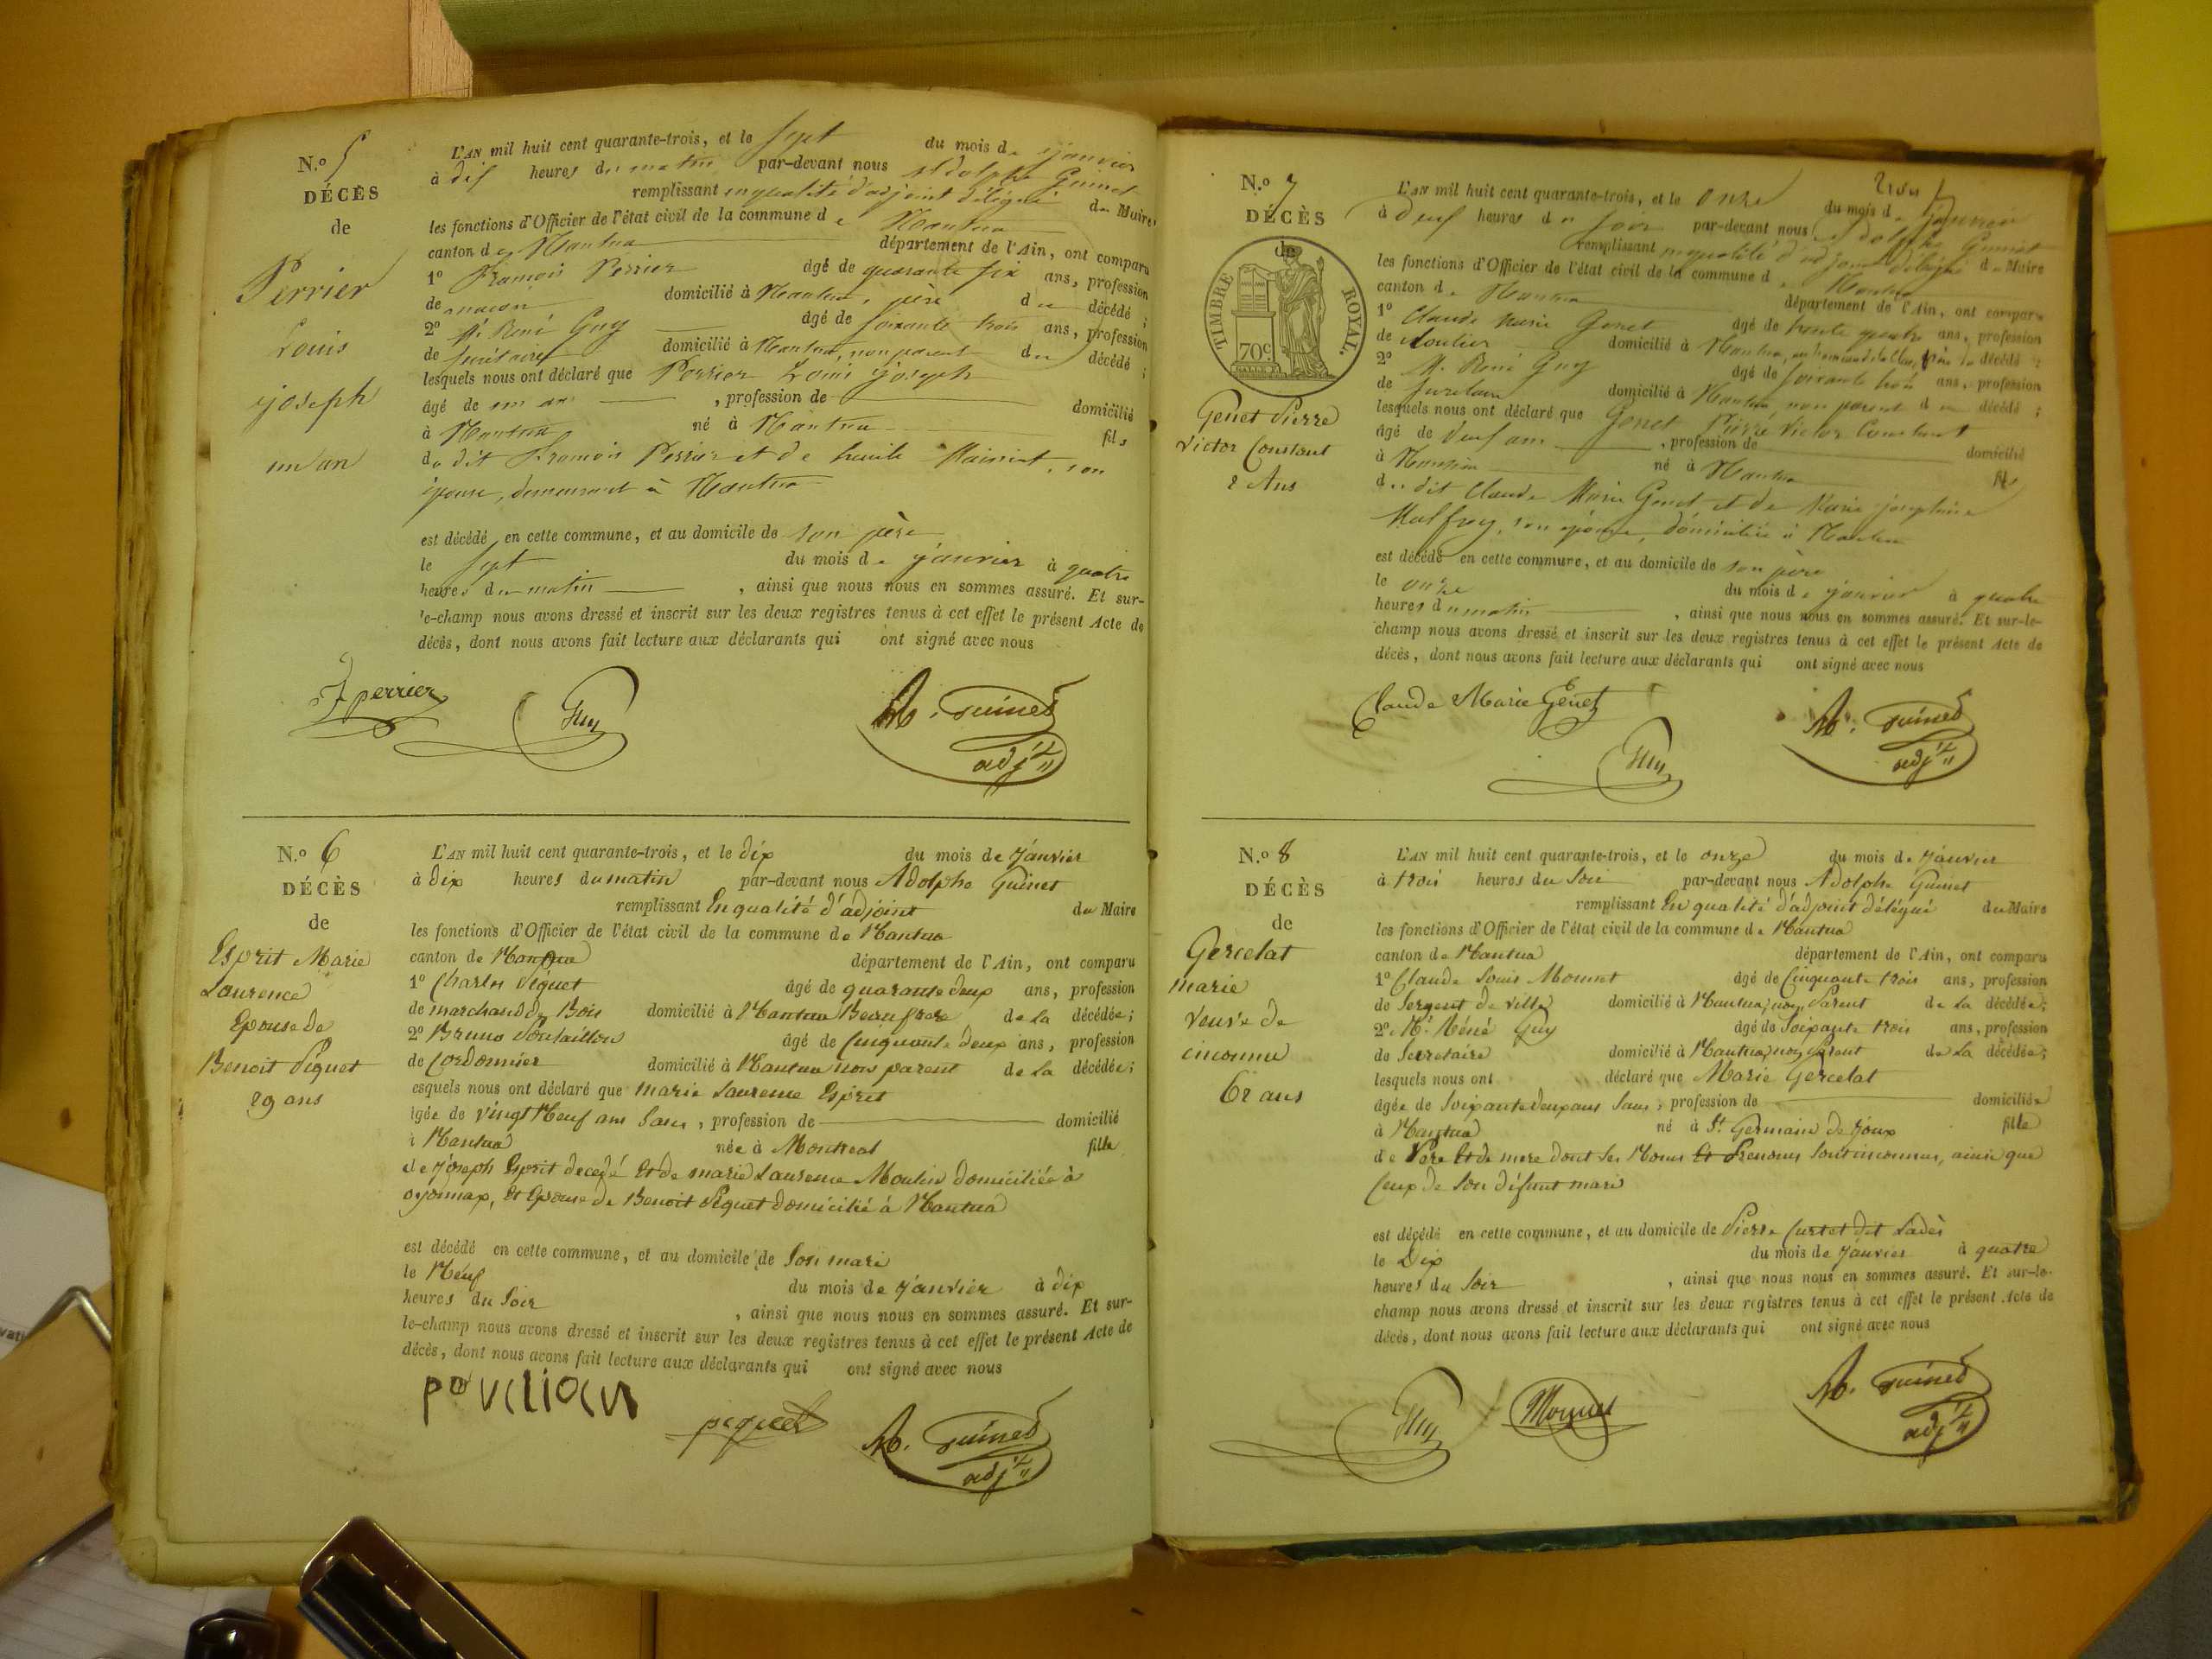 N.º 5
DÉCÈS
de
Perrier
Louis
joseph
un an
L'AN mil huit cent quarante-trois, et le sept du mois de janvier
à dix heures du matin par-devant nous Adolphe Guinet
remplissant en qualité d'adjoint délégué du Maire
les fonctions d'Officier de l'état civil de la commune de Nantua
canton de Nantua département de l'Ain, ont comparu
1º François Perrier âgé de quarante six ans, profession
de maçon domicilié à Nantua, père du décédé ;
2º M. René Guy âgé de soixante trois ans, profession
de secrétaire domicilié à Nantua, non parent du décédé ;
lesquels nous ont déclaré que Perrier Louis joseph
âgé de un an , profession de domicilié
à Nantua né à Nantua fils
du dit François Perrier et de son
épouse, demeurant à Nantua
est décédé en cette commune, et au domicile de son père
le sept du mois de janvier à quatre
heures du matin , ainsi que nous nous en sommes assuré. Et sur-
le-champ nous avons dressé et inscrit sur les deux registres tenus à cet effet le présent Acte de
décès, dont nous avons fait lecture aux déclarants qui ont signé avec nous
F perrier Guy Ad. Guinet
adjt
N.º 6
DÉCÈS
de
Esprit Marie
Laurence
Epouse de
Benoit Piquet
29 ans
L'AN mil huit cent quarante-trois, et le dix du mois de Janvier
à dix heures du matin par-devant nous Adolphe Guinet
remplissant En qualité d'adjoint du Maire
les fonctions d'Officier de l'état civil de la commune de Nantua
canton de Nantua département de l'Ain, ont comparu
1º Charles Piquet âgé de quarante deux ans, profession
de marchand de Bois domicilié à Nantua Beau frere de la décédée ;
2º Bruno âgé de Cinquante deux ans, profession
de Cordonnier domicilié à Nantua non parent de la décédée ;
esquels nous ont déclaré que marie Laurence Esprit
âgée de vingt Neuf ans Sans , profession de domicilié
à Nantua née à Montreal fille
de Joseph Esprit decedé Et de marie Laurence Moulin domiciliée à
oyonnax, Et Epouse de Benoit Piquet domicilié à Nantua
est décédé en cette commune, et au domicile de Son mari
le Neuf du mois de Janvier à dix
heures du Soir , ainsi que nous nous en sommes assuré. Et sur-
le-champ nous avons dressé et inscrit sur les deux registres tenus à cet effet le présent Acte de
décès, dont nous avons fait lecture aux déclarants qui ont signé avec nous
piquet Ad. Guinet
adjt
N.º 7
DÉCÈS
de
TIMBRE ROYAL.
70c.
Genet Pierre
Victor Constant
2 Ans
L'AN mil huit cent quarante-trois, et le onze du mois de janvier
à deux heures du soir par-devant nous Adolphe Guinet
remplissant en qualité d'adjoint délégué du Maire
les fonctions d'Officier de l'état civil de la commune de Nantua
canton de Nantua département de l'Ain, ont comparu
1º Claude Marie Genet âgé de trente quatre ans, profession
de domicilié à Nantua, père du décédé ;
2º M. René Guy âgé de soixante trois ans, profession
de secrétaire domicilié à Nantua non parent du décédé ;
lesquels nous ont déclaré que Genet Pierre Victor Constant
âgé de deux ans , profession de domicilié
à Nantua né à Nantua fils
du dit Claude Marie Genet et de Marie joséphine
son épouse, domiciliés à Nantua
est décédé en cette commune, et au domicile de son père
le onze du mois de janvier à quatre
heures du matin , ainsi que nous nous en sommes assuré. Et sur-le-
champ nous avons dressé et inscrit sur les deux registres tenus à cet effet le présent Acte de
décès, dont nous avons fait lecture aux déclarants qui ont signé avec nous
Claude Marie Genet Ad. Guinet
Guy adjt
N.º 8
DÉCÈS
de
Gercelat
marie
veuve de
inconnu
62 ans
L'AN mil huit cent quarante-trois, et le onze du mois de Janvier
à trois heures du Soir par-devant nous Adolphe Guinet
remplissant En qualité d'adjoint délégué du Maire
les fonctions d'Officier de l'état civil de la commune de Nantua
canton de Nantua département de l'Ain, ont comparu
1º Claude Louis âgé de Cinquante trois ans, profession
de Sergent de ville domicilié à Nantua, non Parent de la décédée ;
2º Mr. Réné Guy âgé de Soixante trois ans, profession
de Secretaire domicilié à Nantua, non Parent de la décédée ;
lesquels nous ont déclaré que Marie Gercelat
âgée de Soixante deux ans Sans , profession de domiciliée
à Nantua né à St. Germain de Joux fille
de Pere Et de mere dont les Noms Et Prenoms Sont inconnus, ainsi que
Ceux de Son défunt mari
est décédé en cette commune, et au domicile de Pierre Curtet dit Ladès
le Dix du mois de Janvier à quatre
heures du Soir , ainsi que nous nous en sommes assuré. Et sur-le-
champ nous avons dressé et inscrit sur les deux registres tenus à cet effet le présent Acte de
décès, dont nous avons fait lecture aux déclarants qui ont signé avec nous
Guy Ad. Guinet
adjt